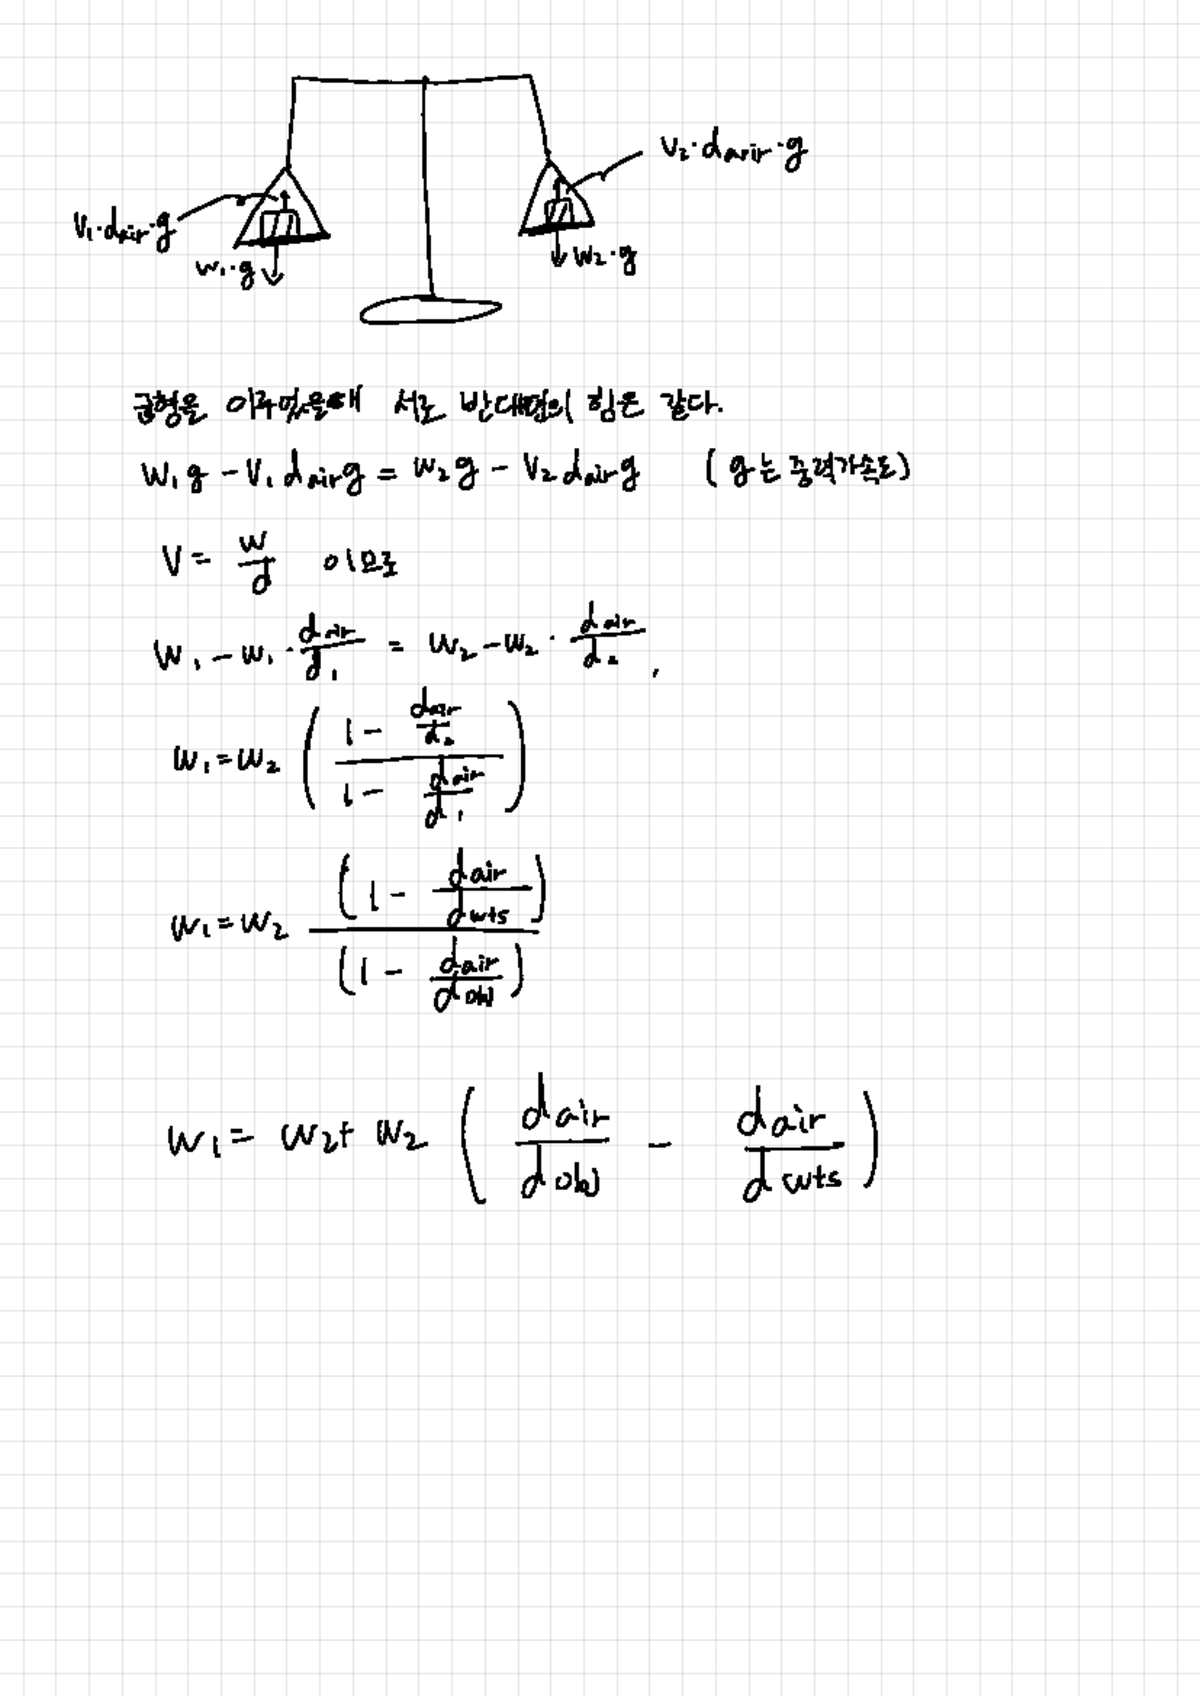 V₁·dair·g
w₁·g
V₂·dair·g
w₂·g
균형을 이루었을때 서로 반대편의 힘은 같다.
w₁g - V₁dairg = w₂g - V₂dairg (g는 중력가속도)
V = w/d 이므로
w₁ - w₁·dair/d₁ = w₂ - w₂·dair/d₂,
w₁ = w₂ ((1 - dair/d₂)/(1 - dair/d₁))
w₁ = w₂ (1 - dair/dwts)/(1 - dair/dobj)
w₁ = w₂ + w₂ (dair/dobj - dair/dwts)